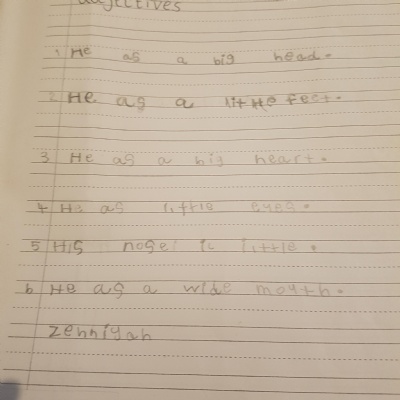 adjectives
1 He as a big head.
2 He as a little feet.
3 He as a big heart.
4 He as little eyes.
5 His nose is little.
6 He as a wide mouth.
Zenniyah